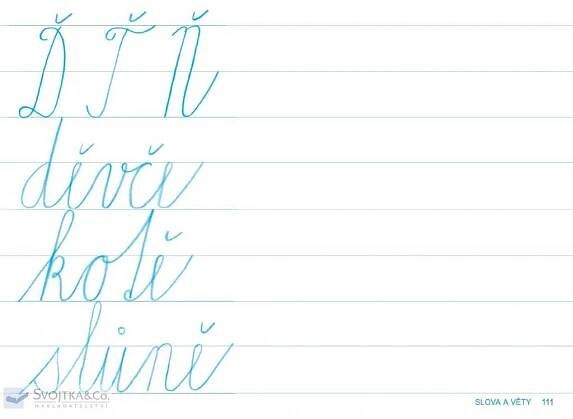 Ď Ť Ň
děvče
kotě
slůně
SVOJTKA&CO.
NAKLADATELSTVÍ
SLOVA A VĚTY 111